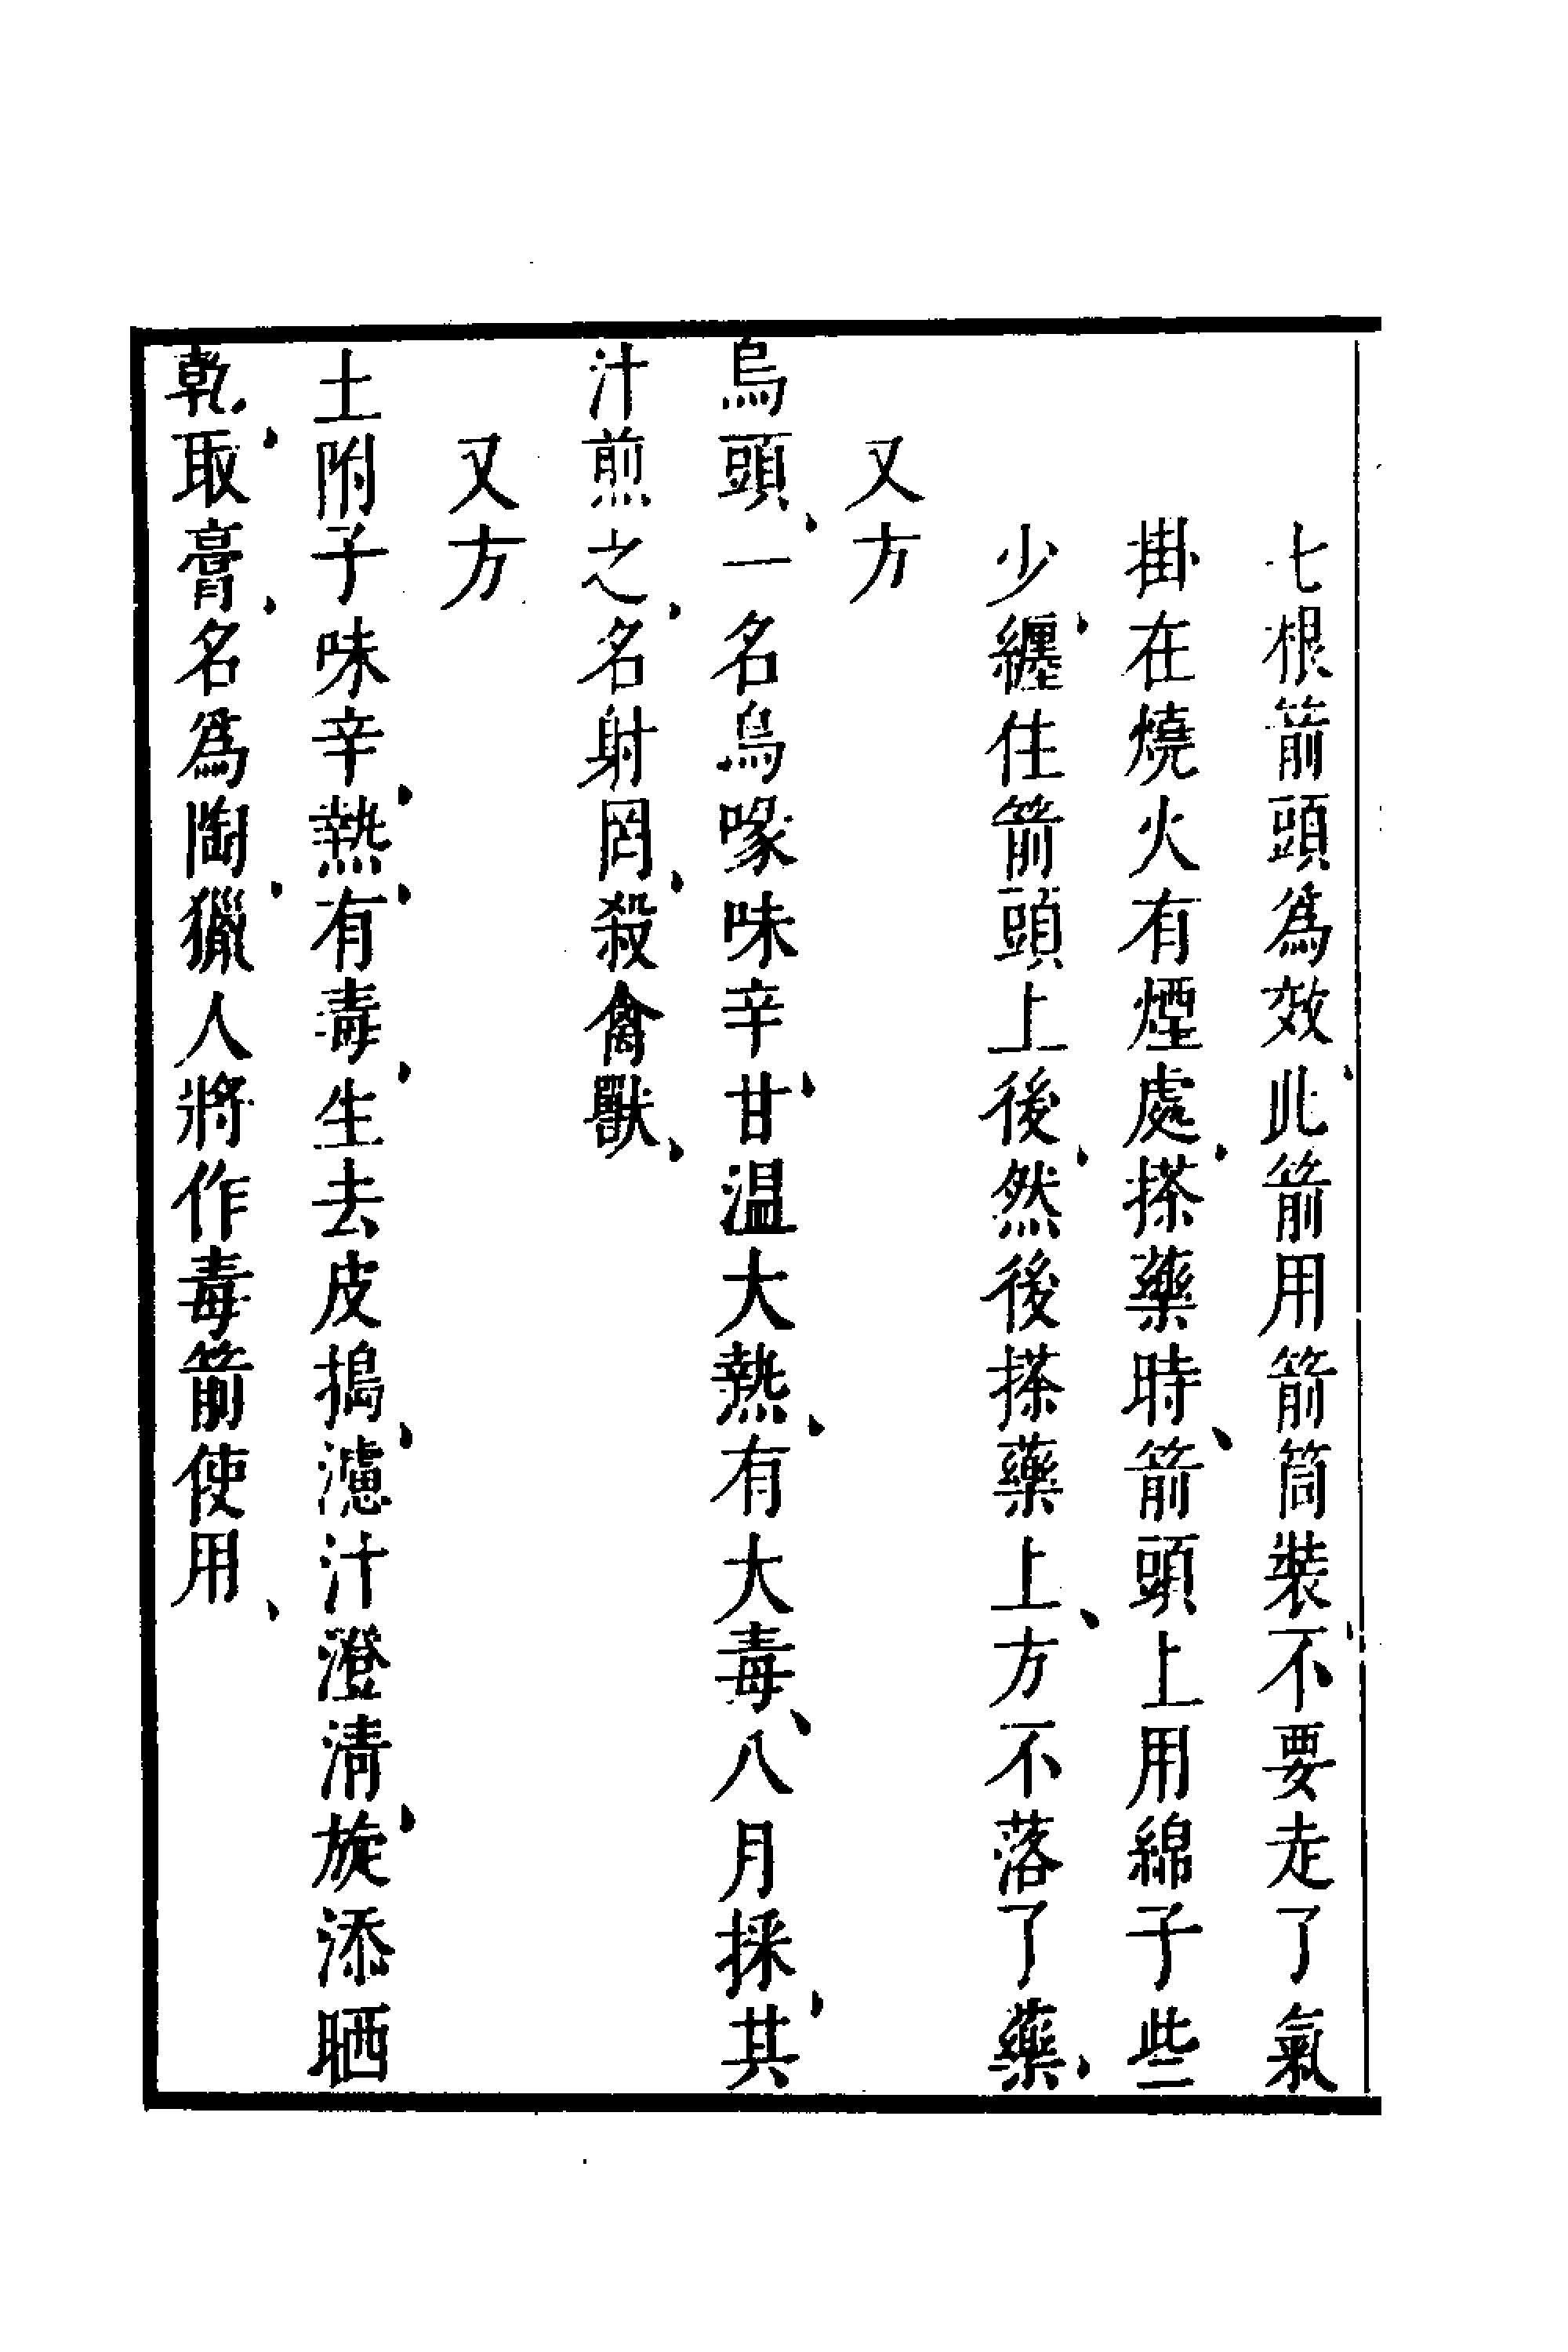 七根箭頭為效、此箭用箭筒裝、不要走了氣
掛在燒火有煙處、搽藥時、箭頭上用綿子些
少、纏住箭頭上後、然後搽藥上、方不落了藥、
又方
烏頭、一名烏喙味辛甘、温大熱、有大毒、八月採、其
汁煎之、名射罔、殺禽獸、
又方
土附子味辛、熱、有毒、生去皮搗、濾汁澄清、旋添晒
乾、取膏、名為陶、獵人將作毒箭使用、